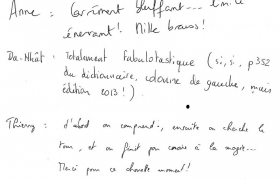 Anne : Carrément bluffant... limite
énervant! Mille bravos!
Da-Nhât : Totalement fabulotastique (si, si, p352
du dictionnaire, colonne de gauche, mais
édition 2013!).
Thierry : d'abord on comprend, ensuite on cherche le
truc, et on finit par croire à la magie...
Merci pour ce chouette moment!